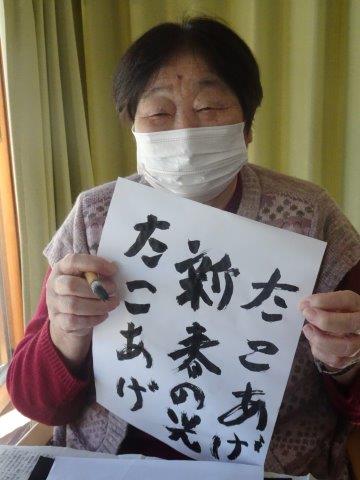 たこあげ
新春の光
たこあげ